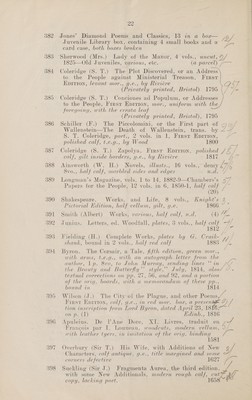 22
382 Jones' Diamond Poems and Classics, 13 in a box—
Juvenile Library box, containing 4 small books and a
card case, both boxes broken
383 Sherwood (Mrs.) Lady of the Manor, 4 vols., uncut,
1825—Old Juveniles, various, etc. (a parcel)
384 Coleridge (S. T.) The Plot Discovered, or an Address
to the People against Ministerial Treason, First
Edition, levant mor., g.e., by Riviere
(Privately printed, Bristol) 1795
385 Coleridge (S. T.) Conciones ad Populum, or Addresses
to the People, First Edition, mor., uniform with the
foregoing, with the errata leaf
(Privately printed, Bristol) 1795
386 Schiller (F.) The Piccolomini, or the First part of
Wallenstein—The Death of Wallenstein, trans. by
S. T. Coleridge, port., 2 vols. in 1, First Edition,
polished calf, t.e.g., by Wood 1800
387 Coleridge (S. T.) Zapolya, First Edition, polished
calf, gilt inside borders, g.e., by Riviere 1817
388 Ainsworth (W. H.) Novels, illustr., 16 vols., demy
8vo., half calf, marbled sides and edges n.d.
389 Longman's Magazine, vols. 1 to 11, 1882-8—Chambers's
Papers for the People, 12 vols. in 6, 1850-1, half calf
(20)
390 Shakspeare. Works, and Life, 8 vols., Knight's
Pictorial Edition, half vellum, gilt, g.e. 1866
391 Smith (Albert) Works, various, half calf, n.d. (4)
392 Junius. Letters, ed. Woodfall, plates, 3 vols., half calf
1812
393 Fielding (H.) Complete Works, plates by G. Cruik-
shank, bound in 2 vols., half red calf 1865
394 Byron. The Corsair, a Tale, fifth edition, green mor.,
with arms, t.e.g., with an autograph letter from the
author, 1 p. 8vo, to John Murray, sending lines "in
the Beauty and Butterfly" style," July, 1814, also
textual corrections on pp. 27, 56, and 92, and a portion
of the orig. boards, with a memorandum of these pp.,
bound in 1814
395 Wilson (J.) The City of the Plague, and other Poems,
First Edition, calf, g.e., in red mor. box, a presenta-
tion inscription from Lord Byron, dated April 21, 1816,
on p. (1) Edinb., 1816
396 Apuleius. De l'Ane Dore, XI. Livres, traduit en
François par I. Louveau, woodcuts, modern vellum,
with leather tyers, in imitation of the orig. binding
1584
397 Overbury (Sir T.) His Wife, with Additions of New
Characters, calf antique, g.e., title margined and some
corners defective 1627
398 Suckling (Sir J.) Fragmenta Aurea, the third edition,
with some New Additionals, modern rough calf,
copy, lacking port. 1658